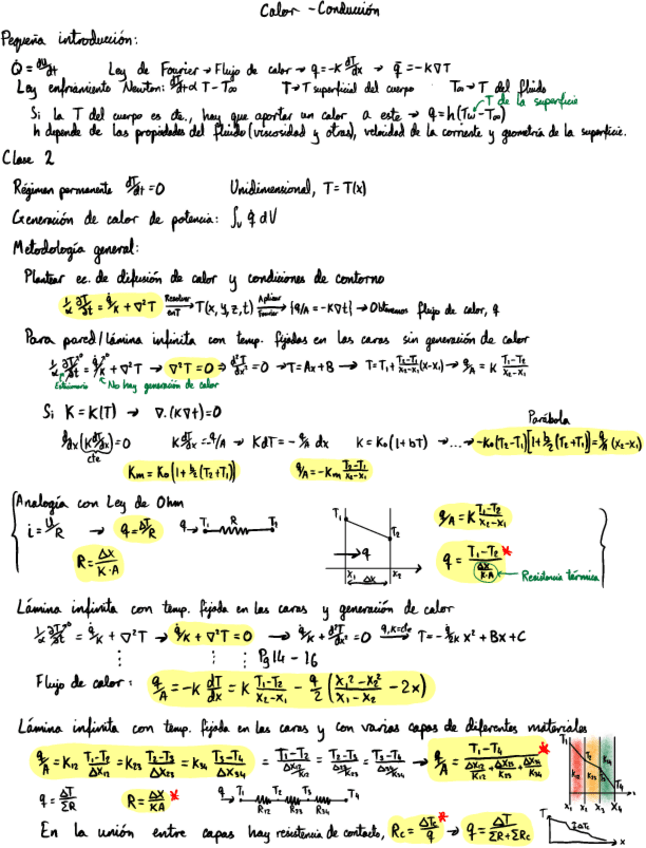 Calor - Conducción
Pequeña introducción:
Q̇ = dU/dt Ley de Fourier → Flujo de calor → q = -K dT/dx → q̄ = -K∇T
Ley enfriamiento Newton: dT/dt ∝ T - T∞ T → T superficial del cuerpo T∞ → T del fluido
T de la superficie
Si la T del cuerpo es cte., hay que aportar un calor a este → q = h(Tw - T∞)
h depende de las propiedades del fluido (viscosidad y otras), velocidad de la corriente y geometría de la superficie.
Clase 2
Régimen permanente dT/dt = 0 Unidimensional, T = T(x)
Generación de calor de potencia: ∫v q̇ dV
Metodología general:
Plantear ec. de difusión de calor y condiciones de contorno
1/α ∂T/∂t = q̇/K + ∇²T Resolver en T → T(x, y, z, t) Aplicar Fourier → {q/A = -K∇t} → Obtenemos flujo de calor, q
Para pared/lámina infinita con temp. fijadas en las caras sin generación de calor
1/α ∂T/∂t⁰ = q̇/K⁰ + ∇²T → ∇²T = 0 ⇒ d²T/dx² = 0 → T = Ax + B → T = T₁ + T₂-T₁/x₂-x₁ (x - x₁) → q/A = K T₁-T₂/x₂-x₁
Estacionario No hay generación de calor
Si K = K(T) → ∇.(K∇t) = 0
Parábola
d/dx (K dT/dx) = 0 K dT/dx = -q/A → KdT = -q/A dx K = K₀(1 + bT) → ... → -K₀(T₂-T₁)[1 + b/2 (T₂+T₁)] = q/A (x₂-x₁)
cte
Km = K₀(1 + b/2 (T₂+T₁)) q/A = -Km T₂-T₁/x₂-x₁
Analogía con Ley de Ohm
i = U/R → q = ΔT/R q → T₁ R T₂ T₁ T₂ → q q/A = K T₁-T₂/x₂-x₁
R = Δx/K·A q = T₁-T₂/Δx/K·A * Resistencia térmica
x₁ Δx x₂
Lámina infinita con temp. fijada en las caras y generación de calor
1/α ∂T/∂t⁰ = q̇/K + ∇²T → q̇/K + ∇²T = 0 → q̇/K + d²T/dx² = 0 q̇,K=cte → T = -q̇/2K x² + Bx + C
Pg 14 - 16
Flujo de calor: q/A = -K dT/dx = K T₁-T₂/x₂-x₁ - q̇/2 (x₁²-x₂²/x₁-x₂ - 2x)
Lámina infinita con temp. fijada en las caras y con varias capas de diferentes materiales
q/A = K₁₂ T₁-T₂/Δx₁₂ = K₂₃ T₂-T₃/Δx₂₃ = K₃₄ T₃-T₄/Δx₃₄ = T₁-T₂/Δx₁₂/K₁₂ = T₂-T₃/Δx₂₃/K₂₃ = T₃-T₄/Δx₃₄/K₃₄ → q/A = T₁-T₄/Δx₁₂/K₁₂ + Δx₂₃/K₂₃ + Δx₃₄/K₃₄ *
T₁ T₂ T₄ K₁₂ K₂₃ K₃₄
x₁ x₂ x₃ x₄
q = ΔT/ΣR R = Δx/KA * q → T₁ T₂ T₃ T₄
R₁₂ R₂₃ R₃₄
En la unión entre capas hay resistencia de contacto, Rc = ΔTc/q * → q = ΔT/ΣR+ΣRc
T x